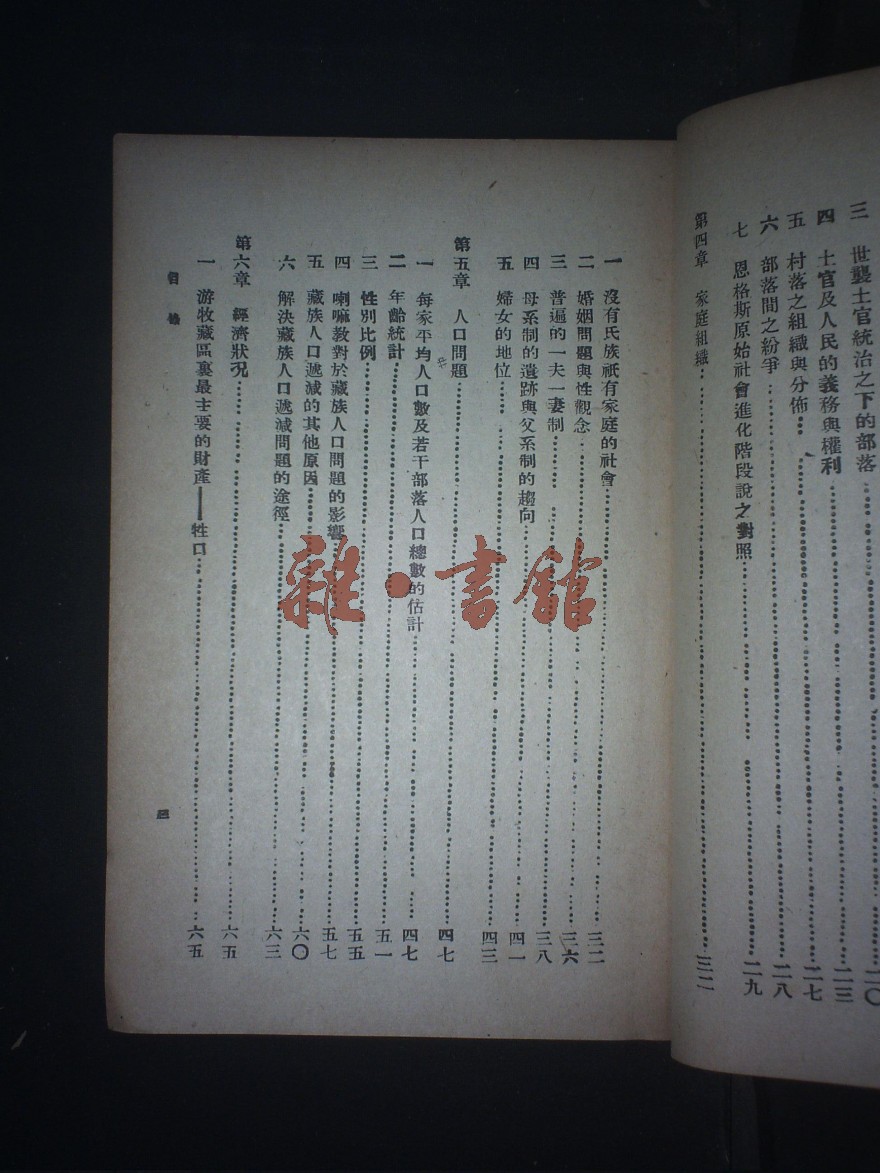 三 世襲土官統治之下的部落……二〇
四 土官及人民的義務與權利……二三
五 村落之組織與分佈……二七
六 部落間之紛爭……二八
七 恩格斯原始社會進化階段說之對照……二九
第四章 家庭組織……三二
一 沒有氏族祇有家庭的社會……三二
二 婚姻問題與性觀念……三六
三 普遍的一夫一妻制……三八
四 母系制的遺跡與父系制的趨向……四一
五 婦女的地位……四三
第五章 人口問題……四七
一 每家平均人口數及若干部落人口總數的估計……四七
二 年齡統計……五一
三 性別比例……五五
四 喇嘛教對於藏族人口問題的影響……五七
五 藏族人口遞減的其他原因……六〇
六 解決藏族人口遞減問題的途徑……六三
第六章 經濟狀況……六五
一 游牧藏區裏最主要的財產——牲口……六五
目錄
三
雜·書館